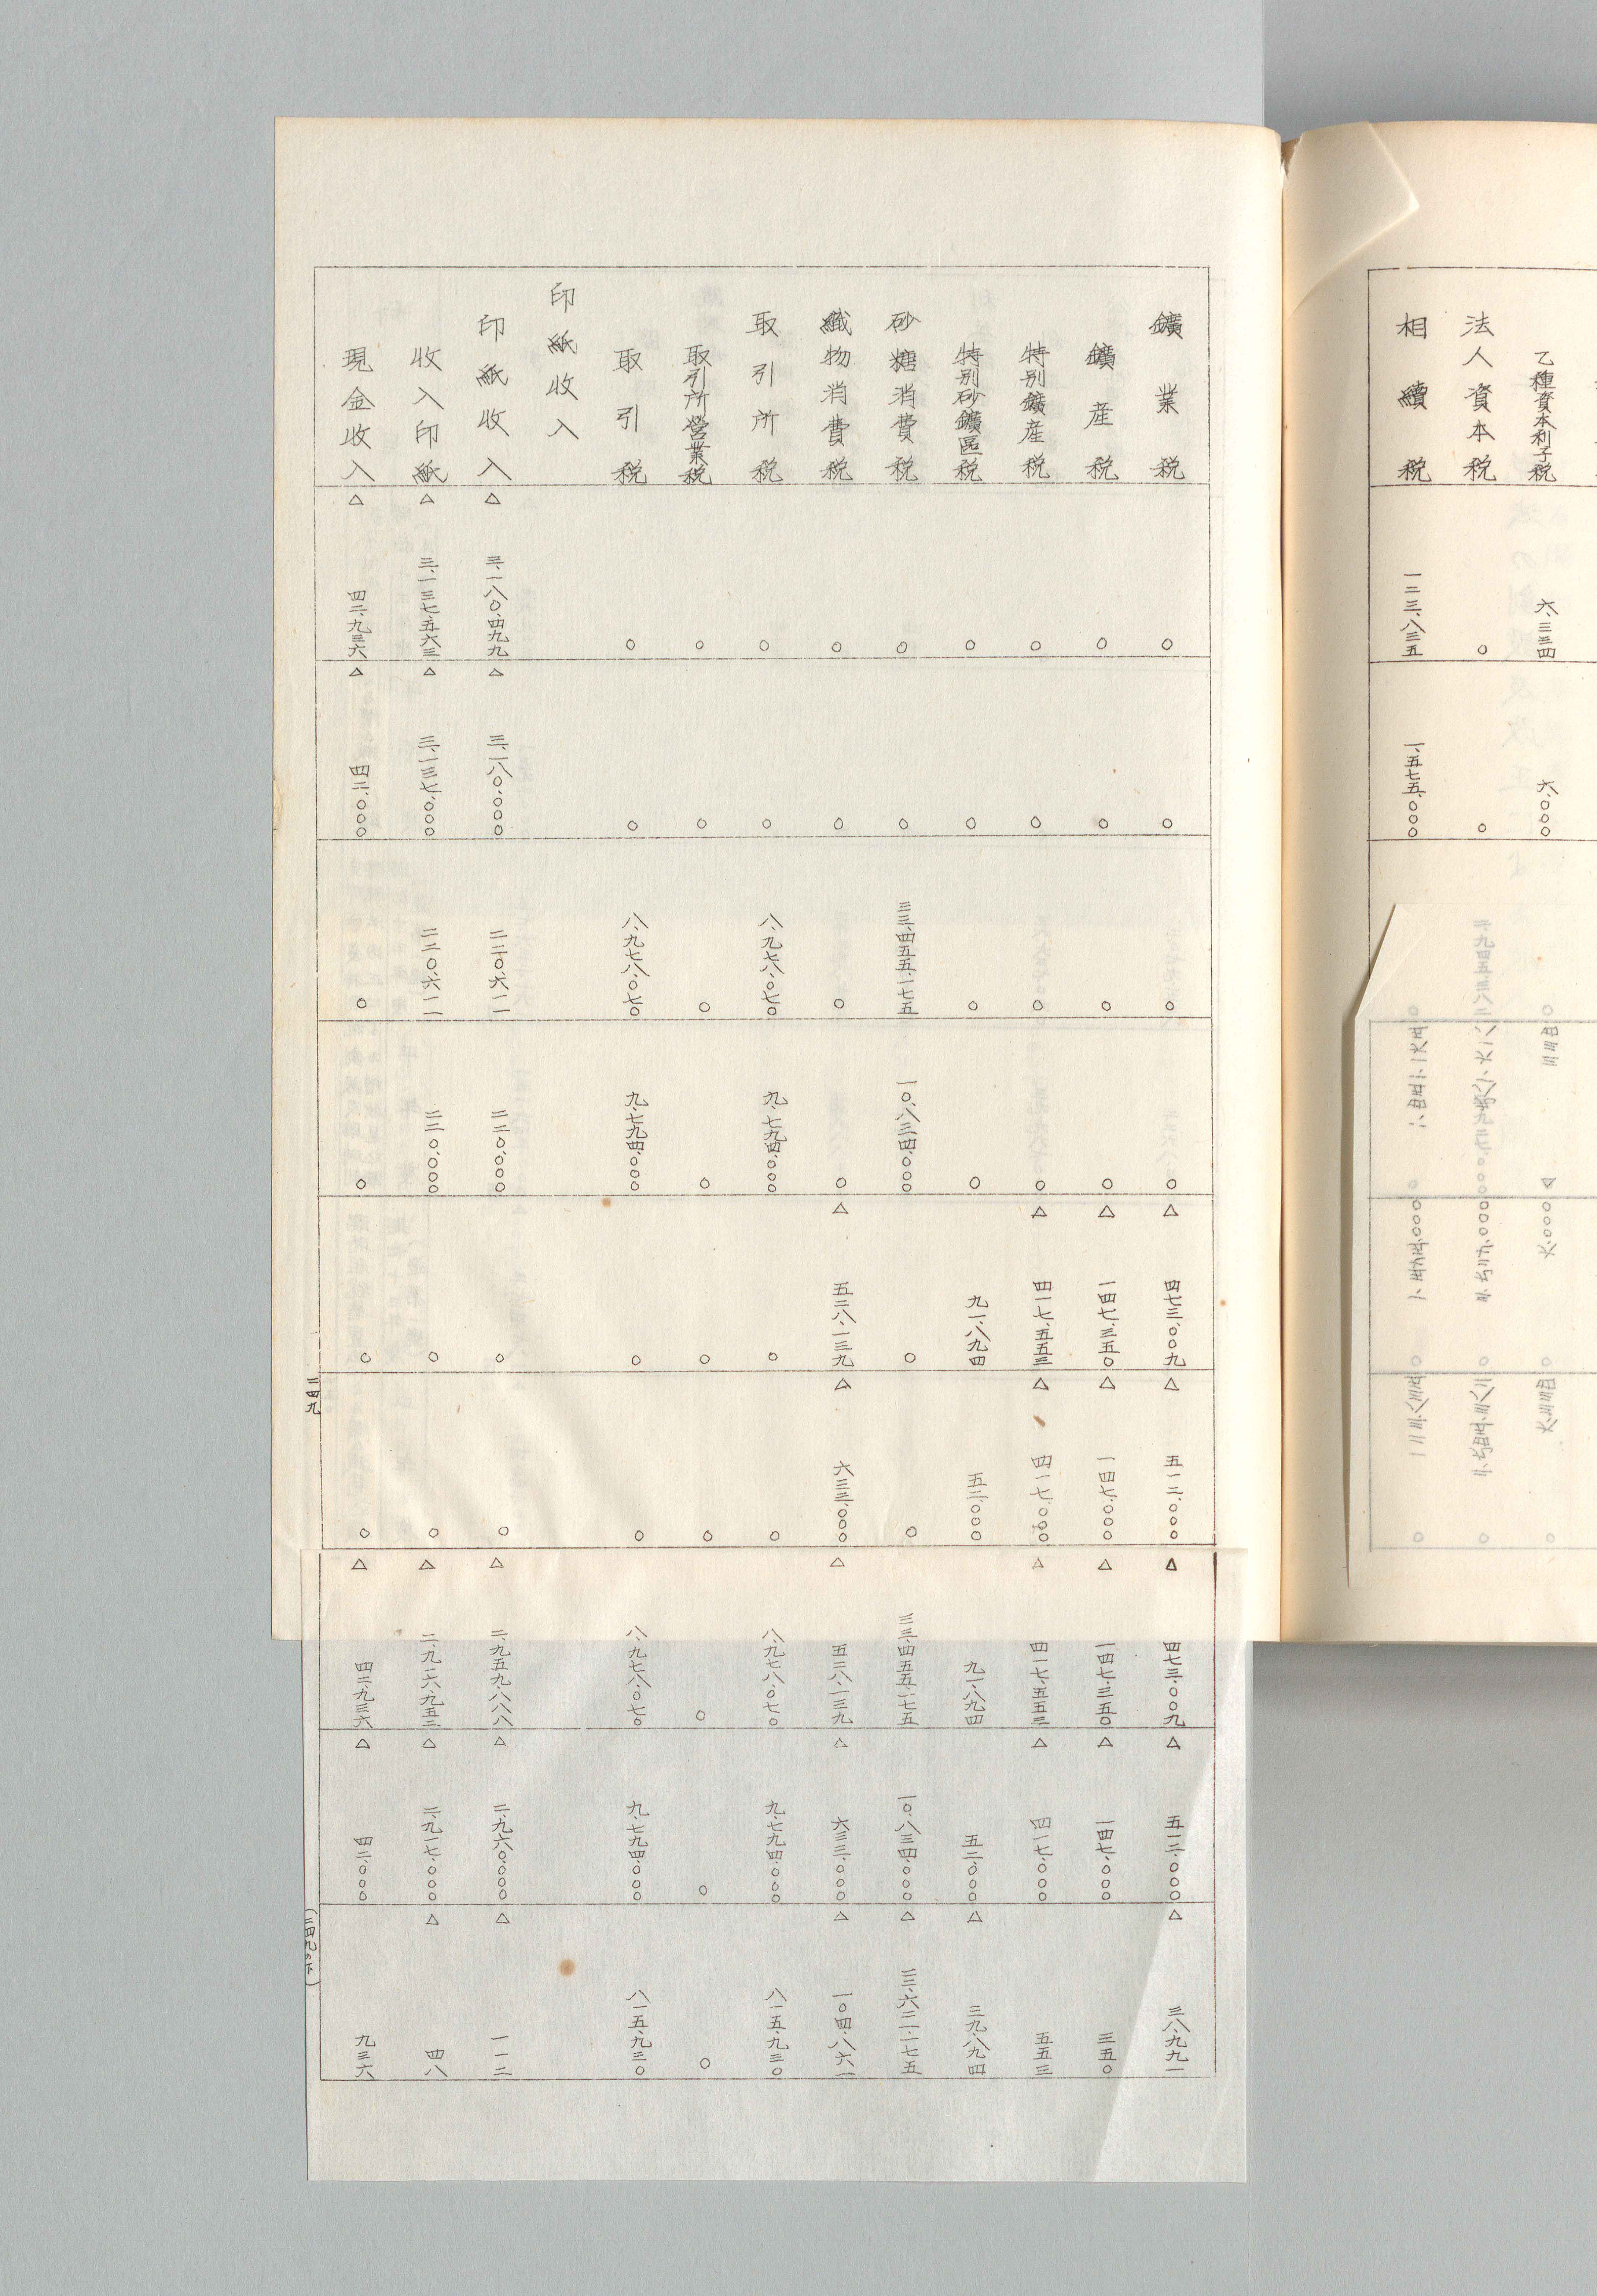 乙種資本利子税 六、三三四 六、〇〇〇
法人資本税 〇 〇
相續税 一二三、八三五 一、五七五、〇〇〇
鑛業税 〇 〇 〇 〇 △四七三、〇〇九 △五一二、〇〇〇 △四七三、〇〇九 △五一二、〇〇〇 △三八、九九一
鑛産税 〇 〇 〇 〇 △一四七、三五〇 △一四七、〇〇〇 △一四七、三五〇 △一四七、〇〇〇 三五〇
特別鑛産税 〇 〇 〇 〇 △四一七、五五三 △四一七、〇〇〇 △四一七、五五三 △四一七、〇〇〇 五五三
特別砂鑛區税 〇 〇 〇 〇 九一、八九四 五二、〇〇〇 九一、八九四 五二、〇〇〇 △三九、八九四
砂糖消費税 〇 〇 三三、四五五、一七五 一〇、八三四、〇〇〇 〇 〇 三三、四五五、一七五 一〇、八三四、〇〇〇 △二二、六二一、一七五
織物消費税 〇 〇 〇 〇 △五二八、一三九 △六三三、〇〇〇 △五二八、一三九 △六三三、〇〇〇 △一〇四、八六一
取引所税 〇 〇 八、九七八、〇七〇 九、七九四、〇〇〇 〇 〇 八、九七八、〇七〇 九、七九四、〇〇〇 八一五、九三〇
取引所營業税 〇 〇 〇 〇 〇 〇 〇 〇 〇
取引税 〇 〇 八、九七八、〇七〇 九、七九四、〇〇〇 〇 〇 八、九七八、〇七〇 九、七九四、〇〇〇 八一五、九三〇
印紙收入
印紙收入 △三、一八〇、四九九 △三、一八〇、〇〇〇 二二〇、六一一 二二〇、〇〇〇 〇 〇 △二、九五九、八八八 △二、九六〇、〇〇〇 △一一二
收入印紙 △三、一三七、五六三 △三、一三七、〇〇〇 二二〇、六一一 二二〇、〇〇〇 〇 〇 △二、九一六、九五二 △二、九一七、〇〇〇 △四八
現金收入 △四二、九三六 △四二、〇〇〇 〇 〇 〇 〇 △四二、九三六 △四二、〇〇〇 九三六
二四九
（二四九の下）